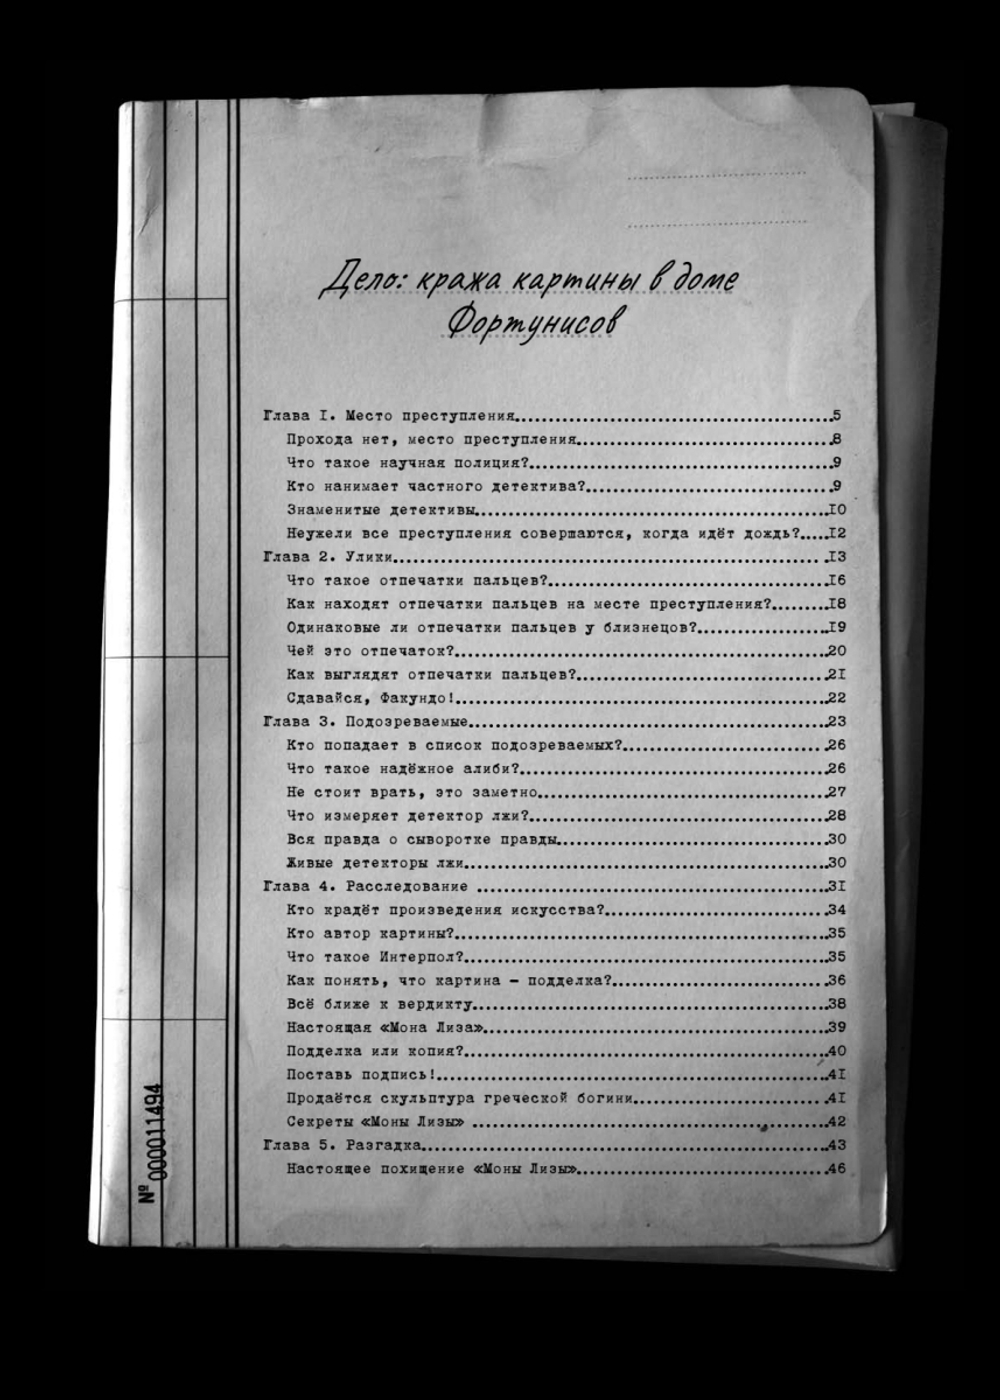 Дело: кража картины в доме
Фортунисов
Глава I. Место преступления.....5
Прохода нет, место преступления.....8
Что такое научная полиция?.....9
Кто нанимает частного детектива?.....9
Знаменитые детективы.....IO
Неужели все преступления совершаются, когда идёт дождь?.....I2
Глава 2. Улики.....I3
Что такое отпечатки пальцев?.....I6
Как находят отпечатки пальцев на месте преступления?.....I8
Одинаковые ли отпечатки пальцев у близнецов?.....I9
Чей это отпечаток?.....20
Как выглядят отпечатки пальцев?.....2I
Сдавайся, Факундо!.....22
Глава 3. Подозреваемые.....23
Кто попадает в список подозреваемых?.....26
Что такое надёжное алиби?.....26
Не стоит врать, это заметно.....27
Что измеряет детектор лжи?.....28
Вся правда о сыворотке правды.....30
Живые детекторы лжи.....30
Глава 4. Расследование .....3I
Кто крадёт произведения искусства?.....34
Кто автор картины?.....35
Что такое Интерпол?.....35
Как понять, что картина – подделка?.....36
Всё ближе к вердикту.....38
Настоящая «Мона Лиза».....39
Подделка или копия?.....40
Поставь подпись!.....4I
Продаётся скульптура греческой богини.....4I
Секреты «Моны Лизы» .....42
Глава 5. Разгадка.....43
Настоящее похищение «Моны Лизы».....46
№ 000011494